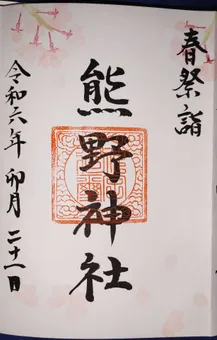 春祭詣
熊野神社
令和六年 卯月 二十一日